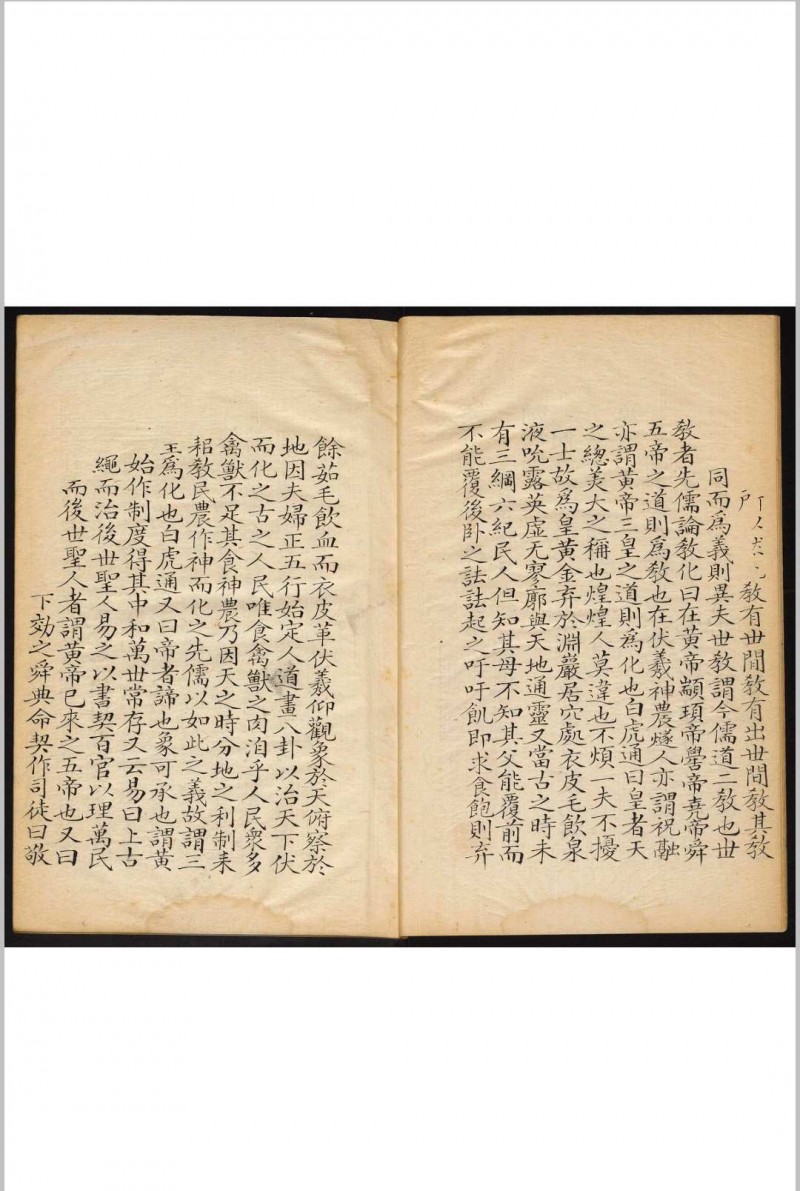 教有世間教有出世間教其教
同而為義則異夫世教謂今儒道二教也世
教者先儒論教化曰在黃帝顓頊帝嚳帝堯帝舜
五帝之道則為教也在伏羲神農燧人亦謂祝融
亦謂黃帝三皇之道則為化也白虎通曰皇者天
之總美大之稱也煌煌人莫違也不煩一夫不擾
一士故為皇黃金弃於淵巖居穴處衣皮毛飲泉
液吮露英虛无寥廓與天地通靈又當古之時未
有三綱六紀民人但知其母不知其父能覆前而
不能覆後卧之詓詓起之吁吁飢即求食飽則弃
餘茹毛飲血而衣皮革伏羲仰觀象於天俯察於
地因夫婦正五行始定人道畫八卦以治天下伏
而化之古之人民唯食禽獸之肉洎乎人民衆多
禽獸不足其食神農乃因天之時分地之利制耒
耜教民農作神而化之先儒以如此之義故謂三
王為化也白虎通又曰帝者諦也象可承也謂黃
始作制度得其中和萬世常存又云易曰上古
繩而治後世聖人易之以書契百官以理萬民
而後世聖人者謂黃帝已來之五帝也又曰
下効之舜典命契作司徒曰敬